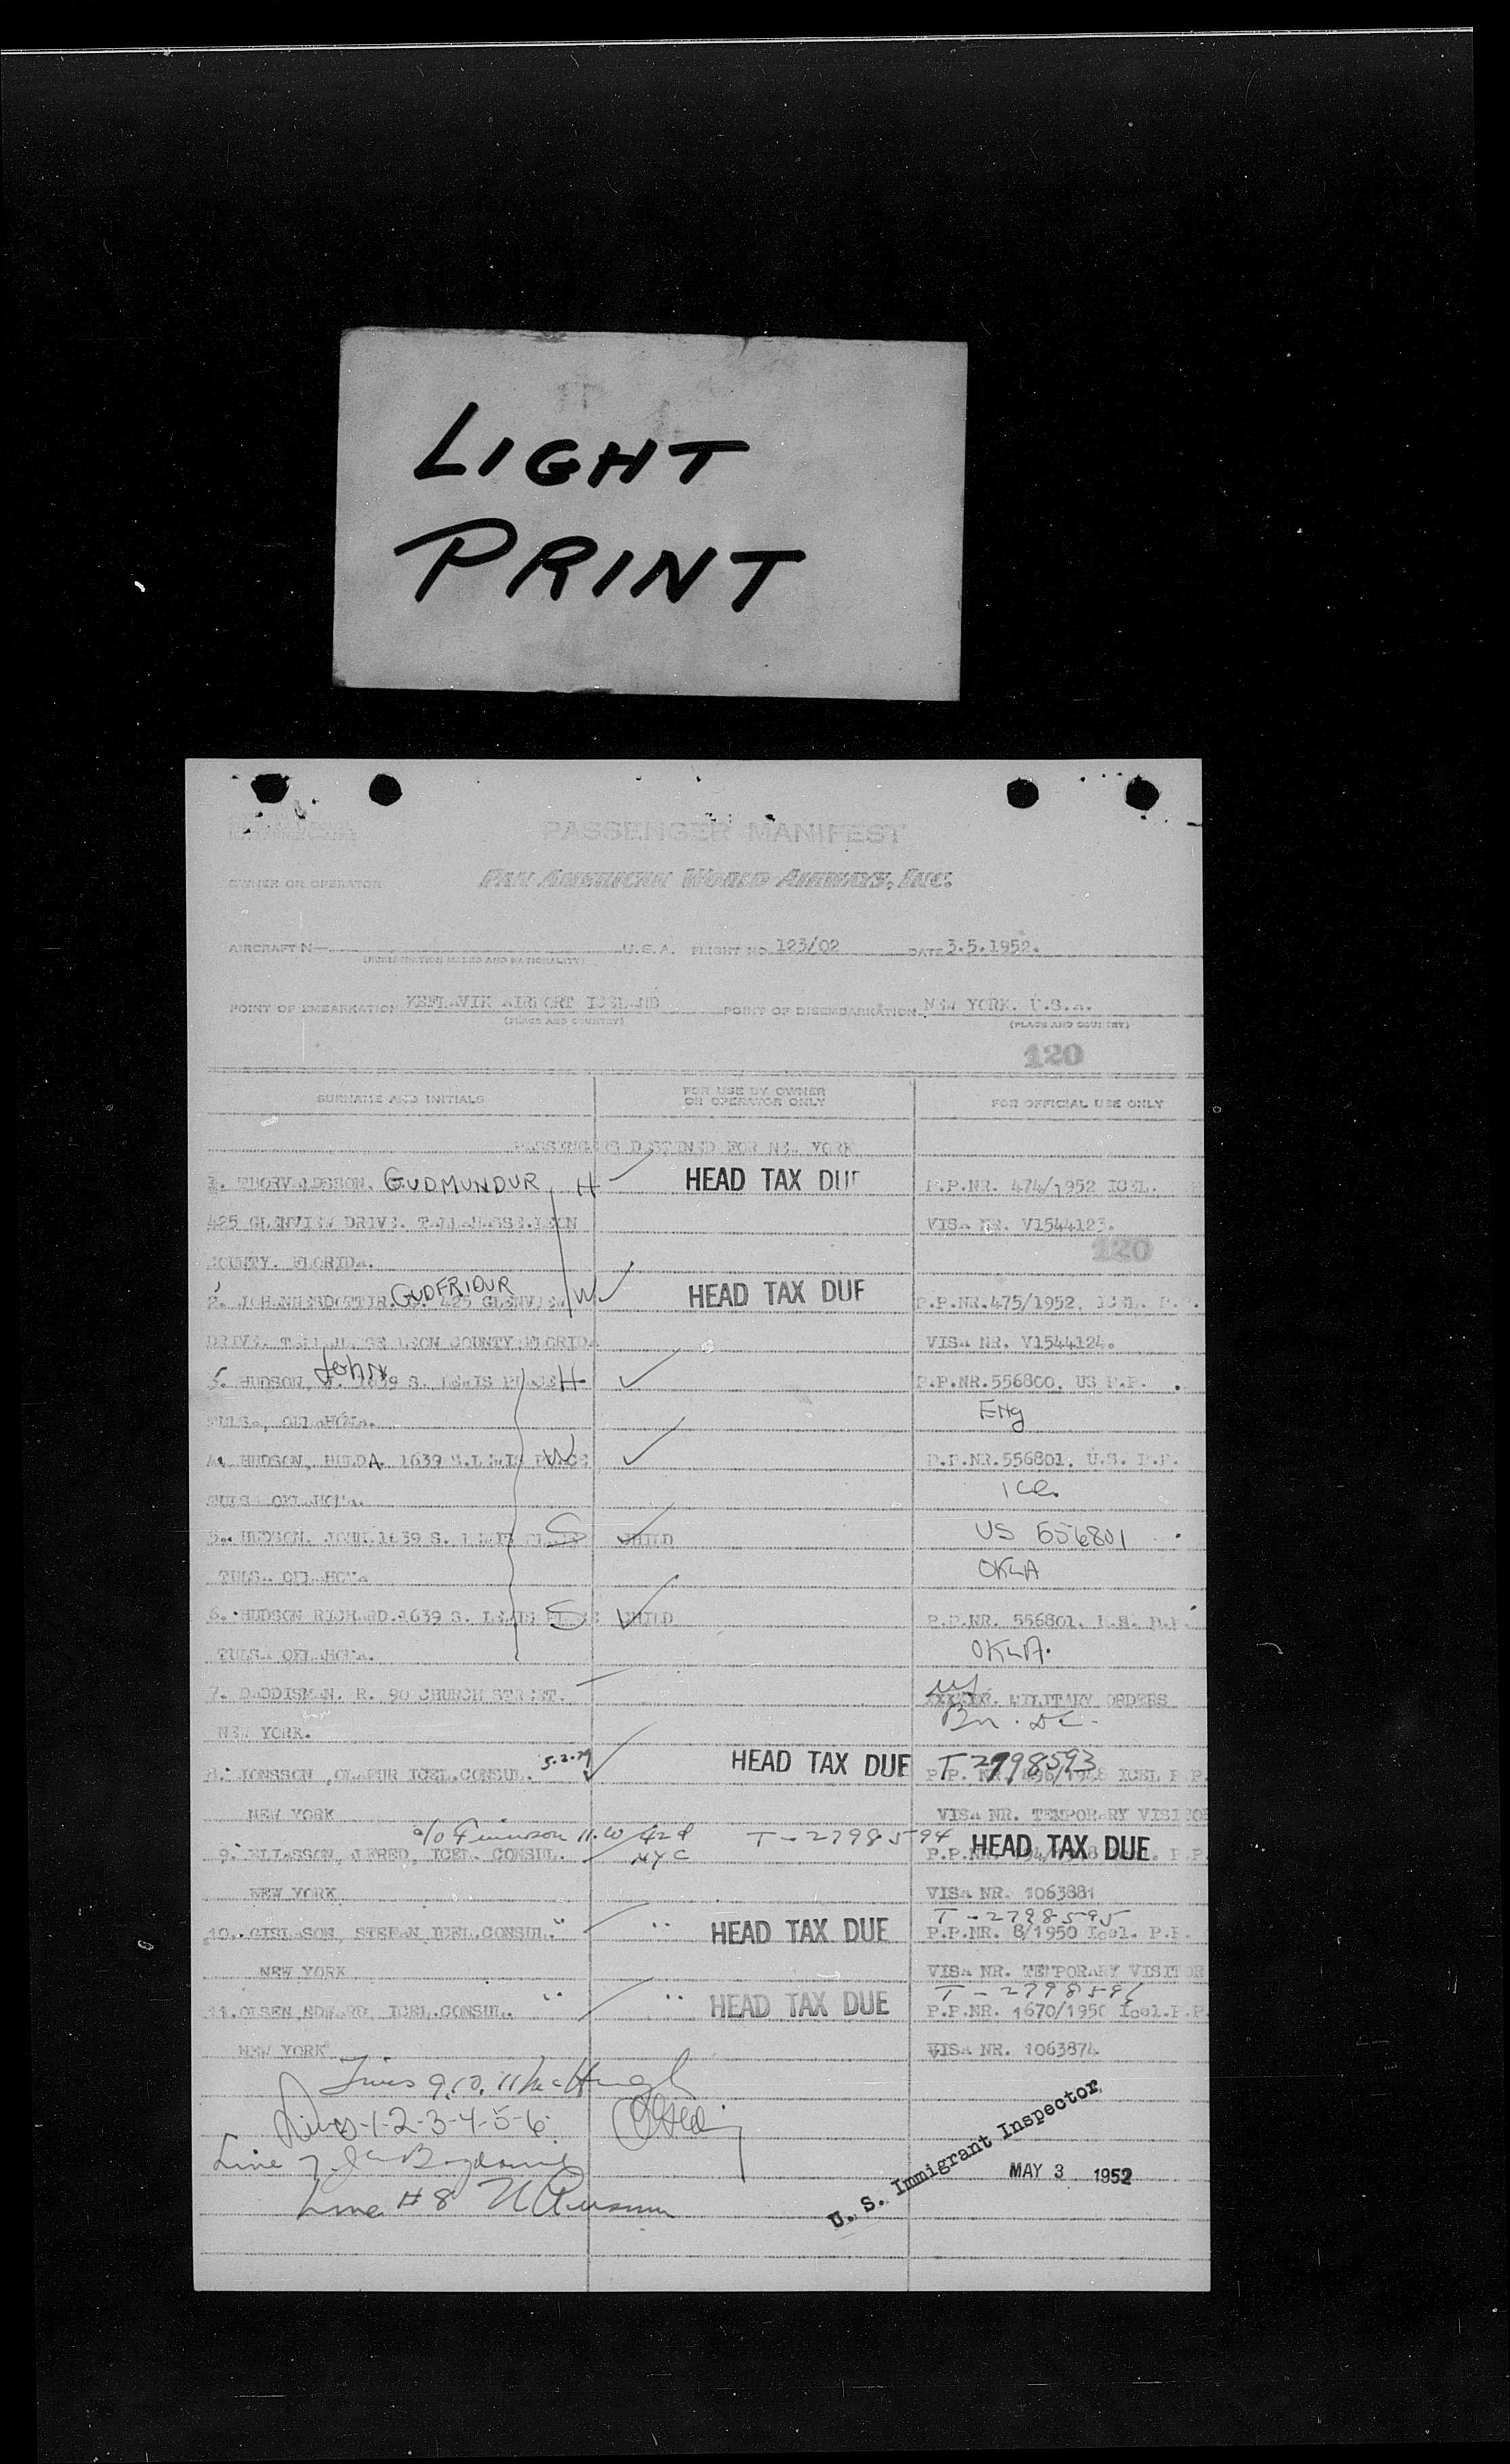 LIGHT
PRINT
PASSENGER MANIFEST
OWNER OR OPERATOR PAN AMERICAN WORLD AIRWAYS, INC.
AIRCRAFT N— U.S.A. FLIGHT NO. 123/02 DATE 3.5.1952.
(REGISTRATION MARKS AND NATIONALITY)
POINT OF EMBARKATION KEFLAVIK AIRPORT ICELAND POINT OF DISEMBARKATION NEW YORK. U.S.A.
(PLACE AND COUNTRY) (PLACE AND COUNTRY)
120
SURNAME AND INITIALS FOR USE BY OWNER OR OPERATOR ONLY FOR OFFICIAL USE ONLY
PASSENGERS DESTINED FOR NEW YORK
1. THORVALDSSON, GUDMUNDUR H HEAD TAX DUE P.P.NR. 474/1952 ICEL.
425 GLENVIEW DRIVE. TALLAHASSE.LEON VISA NR. V1544123.
120
COUNTY. FLORIDA.
GUDFRIDUR
2. JOHANNESDOTTIR, G. 425 GLENVIEW W HEAD TAX DUE P.P.NR.475/1952, ICEL. P.P.
DRIVE. TALLAHASSE LEON COUNTY FLORIDA VISA NR. V1544124.
John
3. HUDSON, J. 1639 S. LEWIS PLACE H P.P.NR.556800, US P.P.
TULSA, OKLAHOMA. Eng
4. HUDSON, HULDA 1639 S.LEWIS PLACE W P.P.NR.556801, U.S. P.P.
TULSA OKLAHOMA. Ice.
5. HUDSON, JOHN 1639 S. LEWIS PLACE S CHILD US 556801
TULSA OKLAHOMA OKLA
6. HUDSON RICHARD.1639 S. LEWIS PLACE S CHILD P.P.NR. 556801. U.S. P.P.
TULSA OKLAHOMA. OKLA.
7. DADDISMAN. R. 90 CHURCH STREET. MILITARY ORDERS
NEW YORK.
8. JONSSON, OLAFUR ICEL.CONSUL. 5.2.29 HEAD TAX DUE T-2798593
ICEL P.P.
NEW YORK VISA NR. TEMPORARY VISITOR
c/o 11.W 42d T-2798594 HEAD TAX DUE
9. ELIASSON, ALFRED, ICEL. CONSUL. NYC
NEW YORK VISA NR. 1063881
T-2798595
10. GISLASON, STEFAN ICEL.CONSUL. " " HEAD TAX DUE P.P.NR. 8/1950 Icel. P.P.
NEW YORK VISA NR. TEMPORARY VISITOR
T-2798596
11. OLSEN, EDWARD, ICEL.CONSUL. " " HEAD TAX DUE P.P.NR. 1670/1950 Icel.P.P.
NEW YORK VISA NR. 1063874
Lines 9, 10, 11 McHugh
Lines-1-2-3-4-5-6
Line 7
Line #8
U. S. Immigrant Inspector
MAY 3 1952